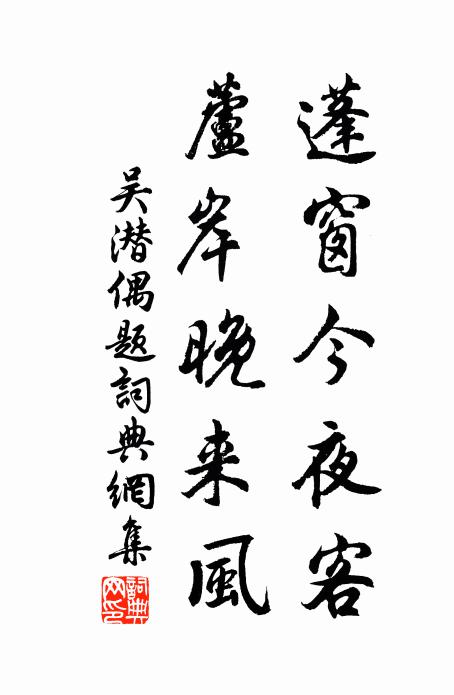 蓬窗今夜客
蘆岸晚来風
吴潜偶题詞典網集
詞典网印